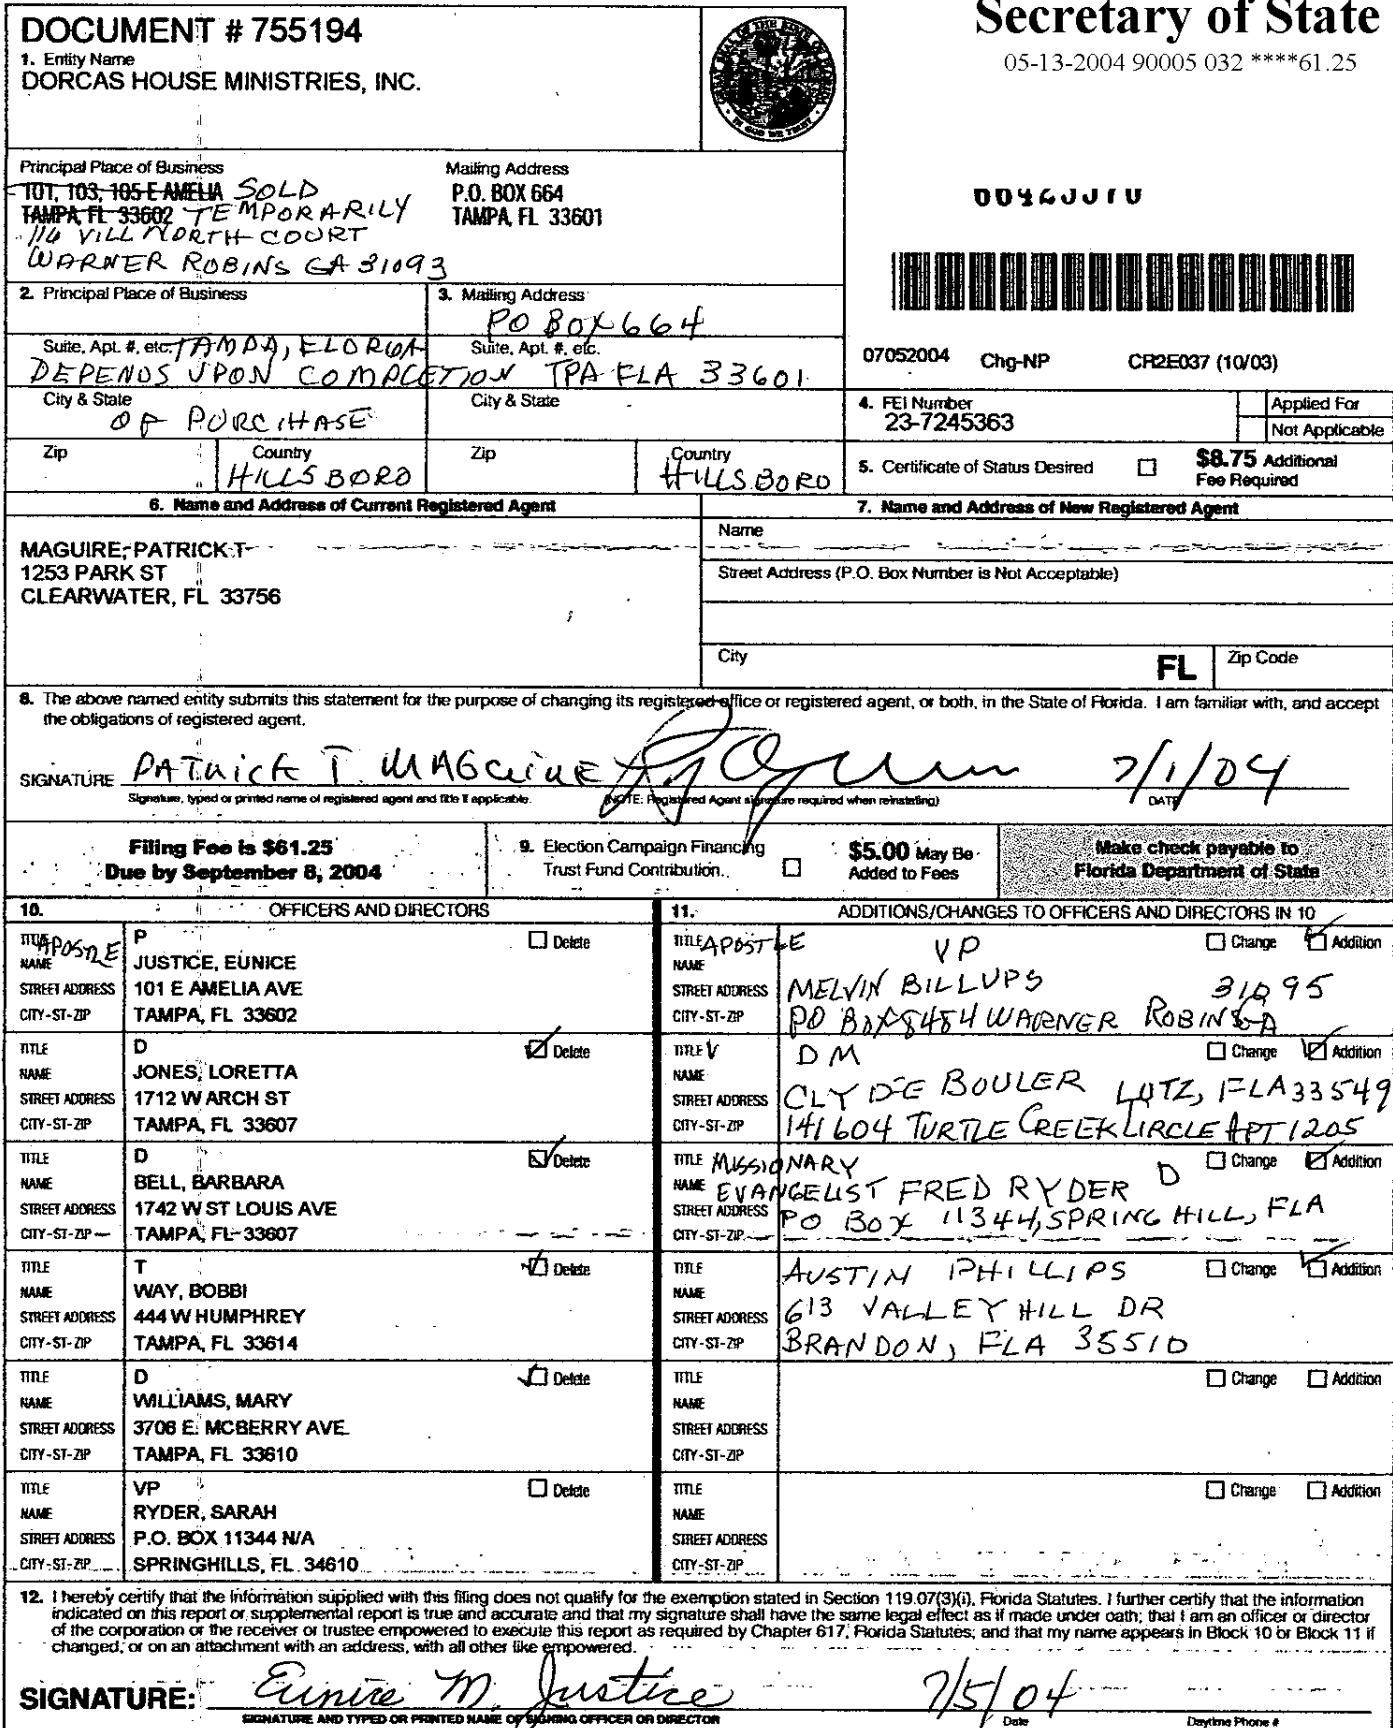 Secretary of State
05-13-2004 90005 032 ****61.25
DOCUMENT # 755194
1. Entity Name
DORCAS HOUSE MINISTRIES, INC.
Principal Place of Business
101, 103, 105 E AMELIA SOLD
TAMPA, FL 33602 TEMPORARILY
116 VILL NORTH COURT
WARNER ROBINS GA 31093
Mailing Address
P.O. BOX 664
TAMPA, FL 33601
2. Principal Place of Business
3. Mailing Address
PO BOX 664
Suite, Apt. #, etc. TAMPA, FLORIDA
Suite, Apt. #, etc.
DEPENDS UPON COMPLETION TPA FLA 33601
City & State
OF PURCHASE
City & State
Zip
Country
HILLSBORO
Zip
Country
HILLSBORO
07052004 Chg-NP CR2E037 (10/03)
4. FEI Number
23-7245363
Applied For
Not Applicable
5. Certificate of Status Desired
$8.75 Additional
Fee Required
6. Name and Address of Current Registered Agent
MAGUIRE, PATRICK T
1253 PARK ST
CLEARWATER, FL 33756
7. Name and Address of New Registered Agent
Name
Street Address (P.O. Box Number is Not Acceptable)
City
FL
Zip Code
8. The above named entity submits this statement for the purpose of changing its registered office or registered agent, or both, in the State of Florida. I am familiar with, and accept
the obligations of registered agent.
SIGNATURE PATRICK T. MAGUIRE 7/1/04
Signature, typed or printed name of registered agent and title if applicable. (NOTE: Registered Agent signature required when reinstating) DATE
Filing Fee is $61.25
Due by September 8, 2004
9. Election Campaign Financing
Trust Fund Contribution.
$5.00 May Be
Added to Fees
Make check payable to
Florida Department of State
10. OFFICERS AND DIRECTORS
TITLE APOSTLE P Delete
NAME JUSTICE, EUNICE
STREET ADDRESS 101 E AMELIA AVE
CITY-ST-ZIP TAMPA, FL 33602
TITLE D Delete
NAME JONES, LORETTA
STREET ADDRESS 1712 W ARCH ST
CITY-ST-ZIP TAMPA, FL 33607
TITLE D Delete
NAME BELL, BARBARA
STREET ADDRESS 1742 W ST LOUIS AVE
CITY-ST-ZIP TAMPA, FL 33607
TITLE T Delete
NAME WAY, BOBBI
STREET ADDRESS 444 W HUMPHREY
CITY-ST-ZIP TAMPA, FL 33614
TITLE D Delete
NAME WILLIAMS, MARY
STREET ADDRESS 3706 E. MCBERRY AVE.
CITY-ST-ZIP TAMPA, FL 33610
TITLE VP Delete
NAME RYDER, SARAH
STREET ADDRESS P.O. BOX 11344 N/A
CITY-ST-ZIP SPRINGHILLS, FL 34610
11. ADDITIONS/CHANGES TO OFFICERS AND DIRECTORS IN 10
TITLE APOSTLE VP Change Addition
NAME
STREET ADDRESS MELVIN BILLUPS 31095
CITY-ST-ZIP PO BOX 8484 WARNER ROBINS GA
TITLE V DM Change Addition
NAME
STREET ADDRESS CLYDE BOULER LUTZ, FLA 33549
CITY-ST-ZIP 141604 TURTLE CREEK CIRCLE APT 1205
TITLE MISSIONARY D Change Addition
NAME EVANGELIST FRED RYDER
STREET ADDRESS PO BOX 11344, SPRING HILL, FLA
CITY-ST-ZIP
TITLE AUSTIN PHILLIPS Change Addition
NAME
STREET ADDRESS 613 VALLEY HILL DR
CITY-ST-ZIP BRANDON, FLA 35510
TITLE Change Addition
NAME
STREET ADDRESS
CITY-ST-ZIP
TITLE Change Addition
NAME
STREET ADDRESS
CITY-ST-ZIP
12. I hereby certify that the information supplied with this filing does not qualify for the exemption stated in Section 119.07(3)(i), Florida Statutes. I further certify that the information
indicated on this report or supplemental report is true and accurate and that my signature shall have the same legal effect as if made under oath; that I am an officer or director
of the corporation or the receiver or trustee empowered to execute this report as required by Chapter 617, Florida Statutes; and that my name appears in Block 10 or Block 11 if
changed, or on an attachment with an address, with all other like empowered.
SIGNATURE: Eunice M. Justice 7/5/04
SIGNATURE AND TYPED OR PRINTED NAME OF SIGNING OFFICER OR DIRECTOR Date Daytime Phone #